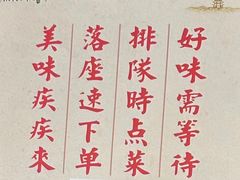 好味需等待
排隊時点菜
落座速下单
美味疾疾來